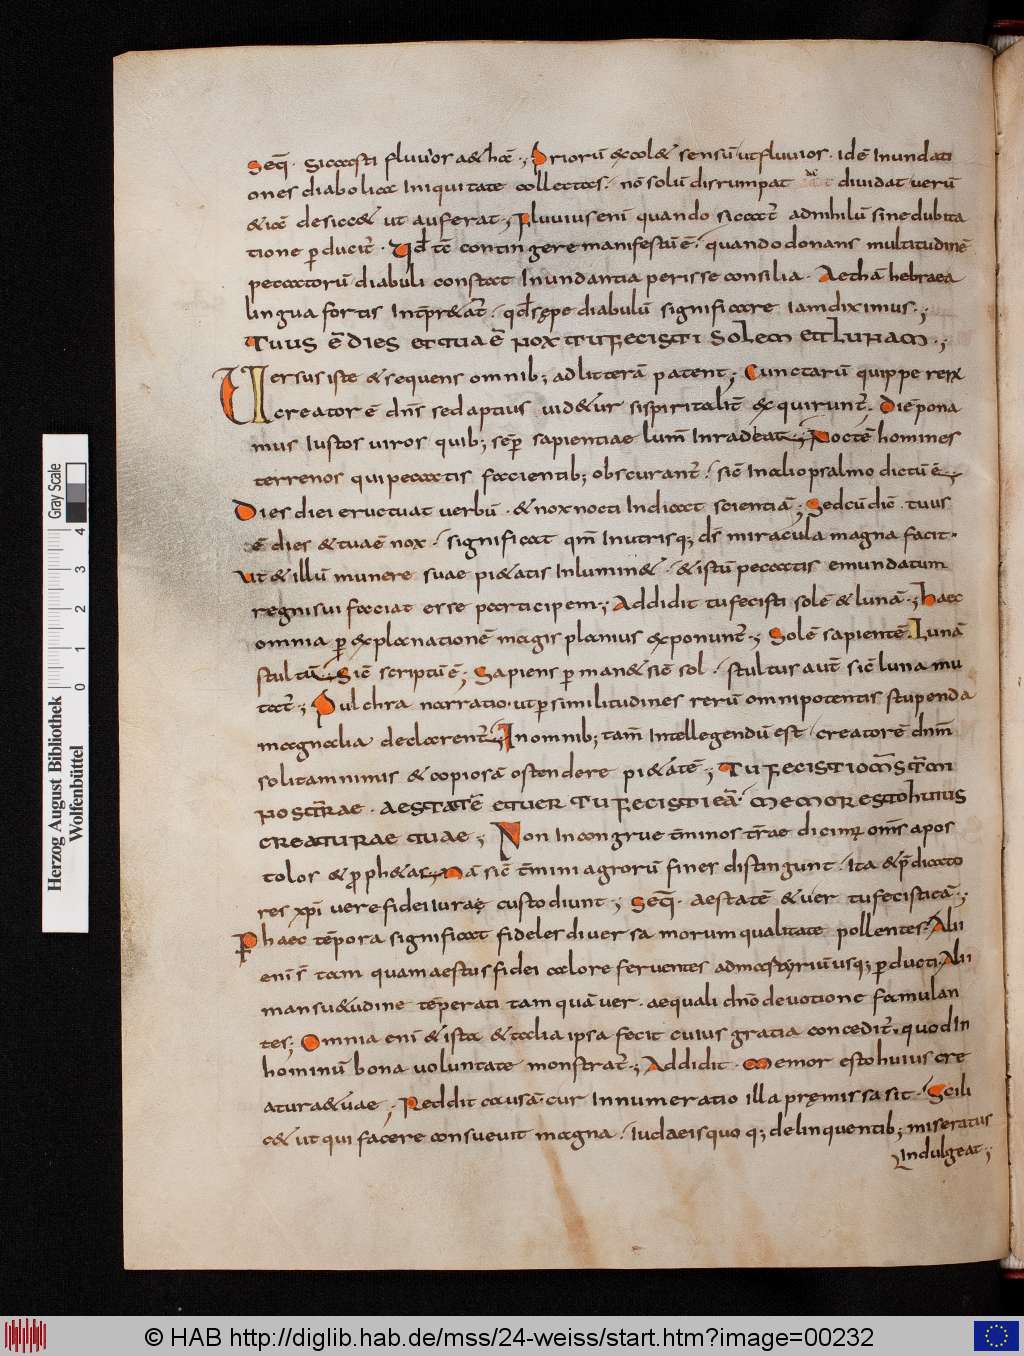 Seq̄· Siccasti fluvios aethā·; Priorū excolet sensū ut fluvios· idē Inundati
ones diabolica Iniquitate collectas· nō solū disrumpat aut dividat verū
etiā desiccet ut auferat; Fluvius enī quando siccat̄ adnihilū sine dubita
tione ꝑducit̄· Qd̄ tc̄ contingere manifestū ē· quando donans multitudinē
peccatorū diaboli constat Inundantia perisse consilia· Aethā hebraea
lingua fortis Intp̄retat̄· qd̄ sępe diabulū significare Iam diximus·;
TUUS ē DIES ET TUA ē NOX TU FECISTI SOLEM ET LUNAM·;
Versus iste et sequens omnib; ad litterā patent; Cunctarū quippe rerū
creator ē dn̄s sed aptius videtur si spiritalit̄ exquirunt̄· Diē pona
mus Iustos viros quib; sēꝑ sapientiae lum̄ Inradiat; Noctē homines
terrenos qui peccatis facientib; obscurant̄· sic̄ In alio psalmo dictū ē·;
Dies diei eructuat verbū· et nox nocti Indicat scientiā; Sed cū dic̄· tuus
ē dies et tua ē nox· significat qm̄ In utrisq; ds̄ miracula magna facit·
Ut et illū munere suae pietatis Inluminet· et istū peccatis emundatum
regni sui faciat esse participem·; Addidit tu fecisti solē et lunā·; haec
omnia ꝑ explanationē magis planius exponunt̄·; Solē sapientē· Lunā
stultū· Sic̄ scriptū ē; Sapiens ꝑmanet sic̄ sol· stultus aut̄ sic̄ luna mu
tat̄·; Pulchra narratio· ut ꝑ similitudines rerū omnipotentis stupenda
magnalia declarent̄·; In omnib; tam̄ Intellegendū est· creatorē dnm̄
solitam nimis et copiosā ostendere pietatē; TU FECISTI OMS T̄MI
NOS T̄RAE· AESTATĒ ET VER TU FECISTI EĀ· MEMOR ESTO HUIUS
CREATURAE TUAE; Non Incongrue t̄minos t̄rae dicim; oms̄ apos
tolos et ꝓphetas· Nā sic̄ t̄mini agrorū fines distingunt· Ita et p̄dicato
res xp̄i vere fidei Iura custodiunt; Seq̄· aestatē et ver tu fecisti eā·;
P haec tēpora significat fideles diversa morum qualitate pollentes· Alii
enī s̄ tam quam aestus fidei calore ferventes ad martyriū usq; ꝑducti· Alii
mansuetudine tēperati tam quā ver· aequali dn̄o devotione famulan
tes; Omnia enī et ista et alia ipsa fecit cuius gratia concedit̄· quod In
hominū bona voluntate monstrat̄·; Addidit· Memor esto huius cre
aturae tuae; Reddit causā cur Innumeratio illa pręmissa sit· Scili
cet ut qui facere consuevit magna· Iudaeis quoq; delinquentib; miseratus
Indulgeat·;
Herzog August Bibliothek
Wolfenbüttel
0 1 2 3 4
Gray Scale
© HAB http://diglib.hab.de/mss/24-weiss/start.htm?image=00232